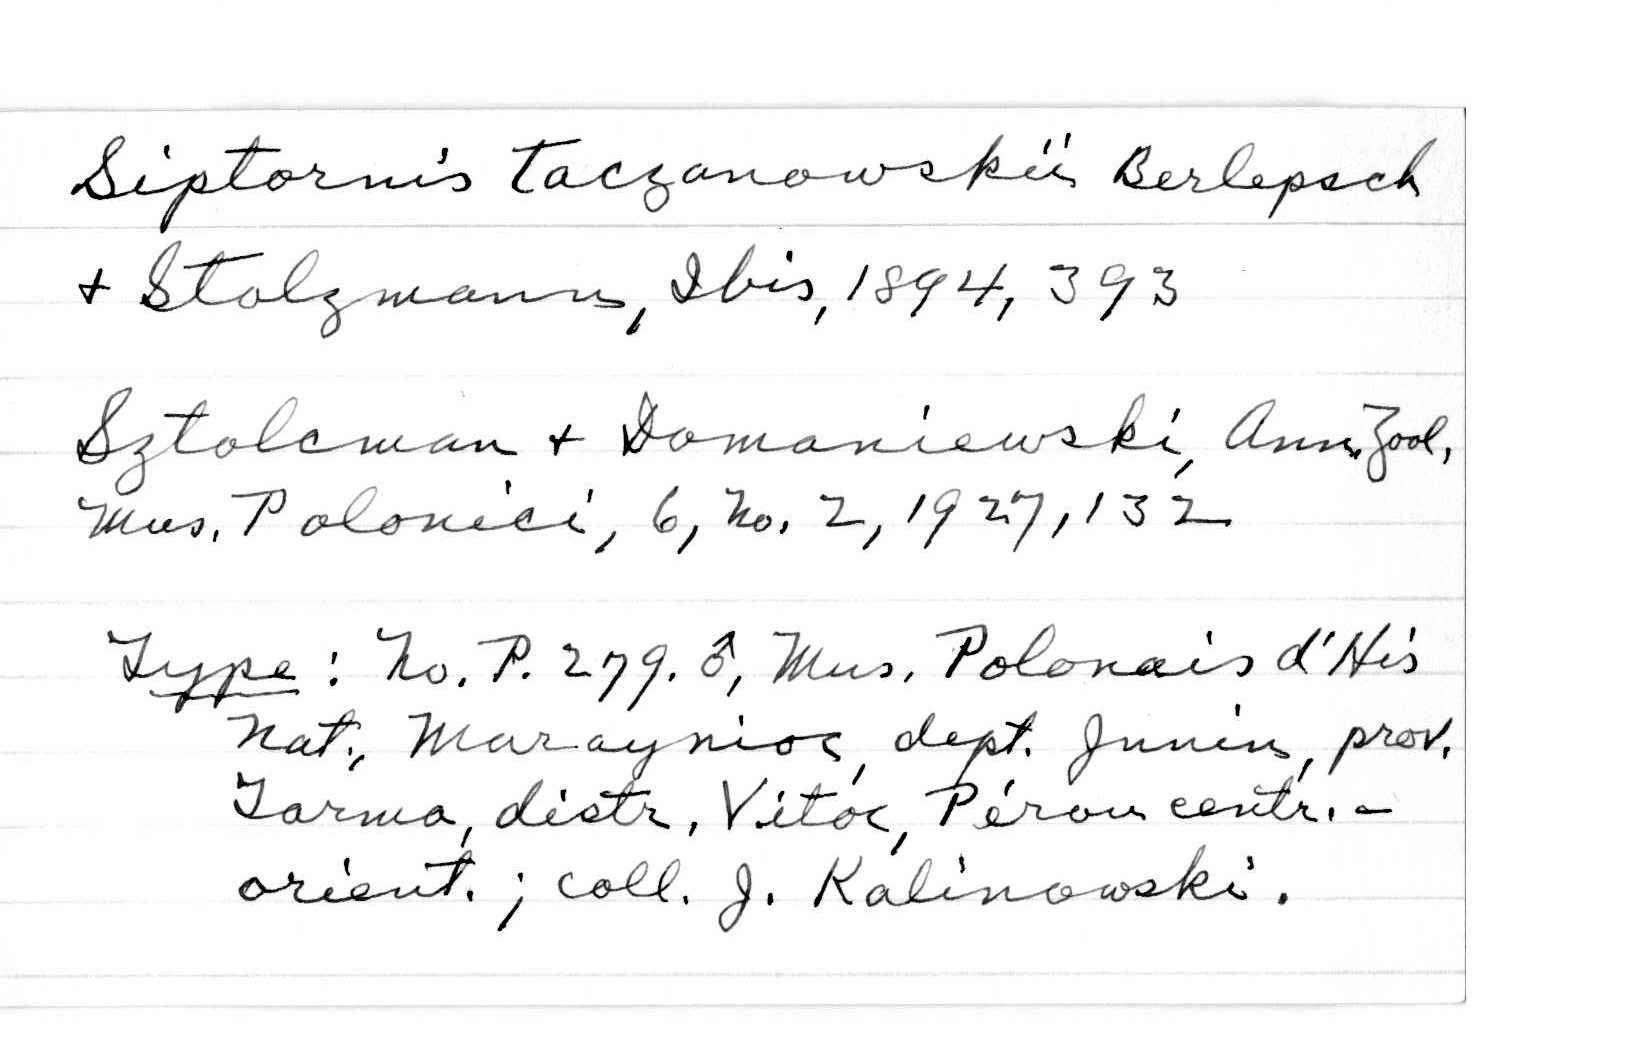 Siptornis taczanowskii Berlepsch
+ Stolzmann, Ibis, 1894, 393
Sztolcman + Domaniewski, Ann. Zool.
Mus. Polonici, 6, No. 2, 1927, 132
Type: No. P. 279. ♂, Mus. Polonais d'His
Nat., Maraynioc, dept. Junin, prov.
Tarma, distr. Vitóc, Pérou centr.-
orient.; coll. J. Kalinowski.